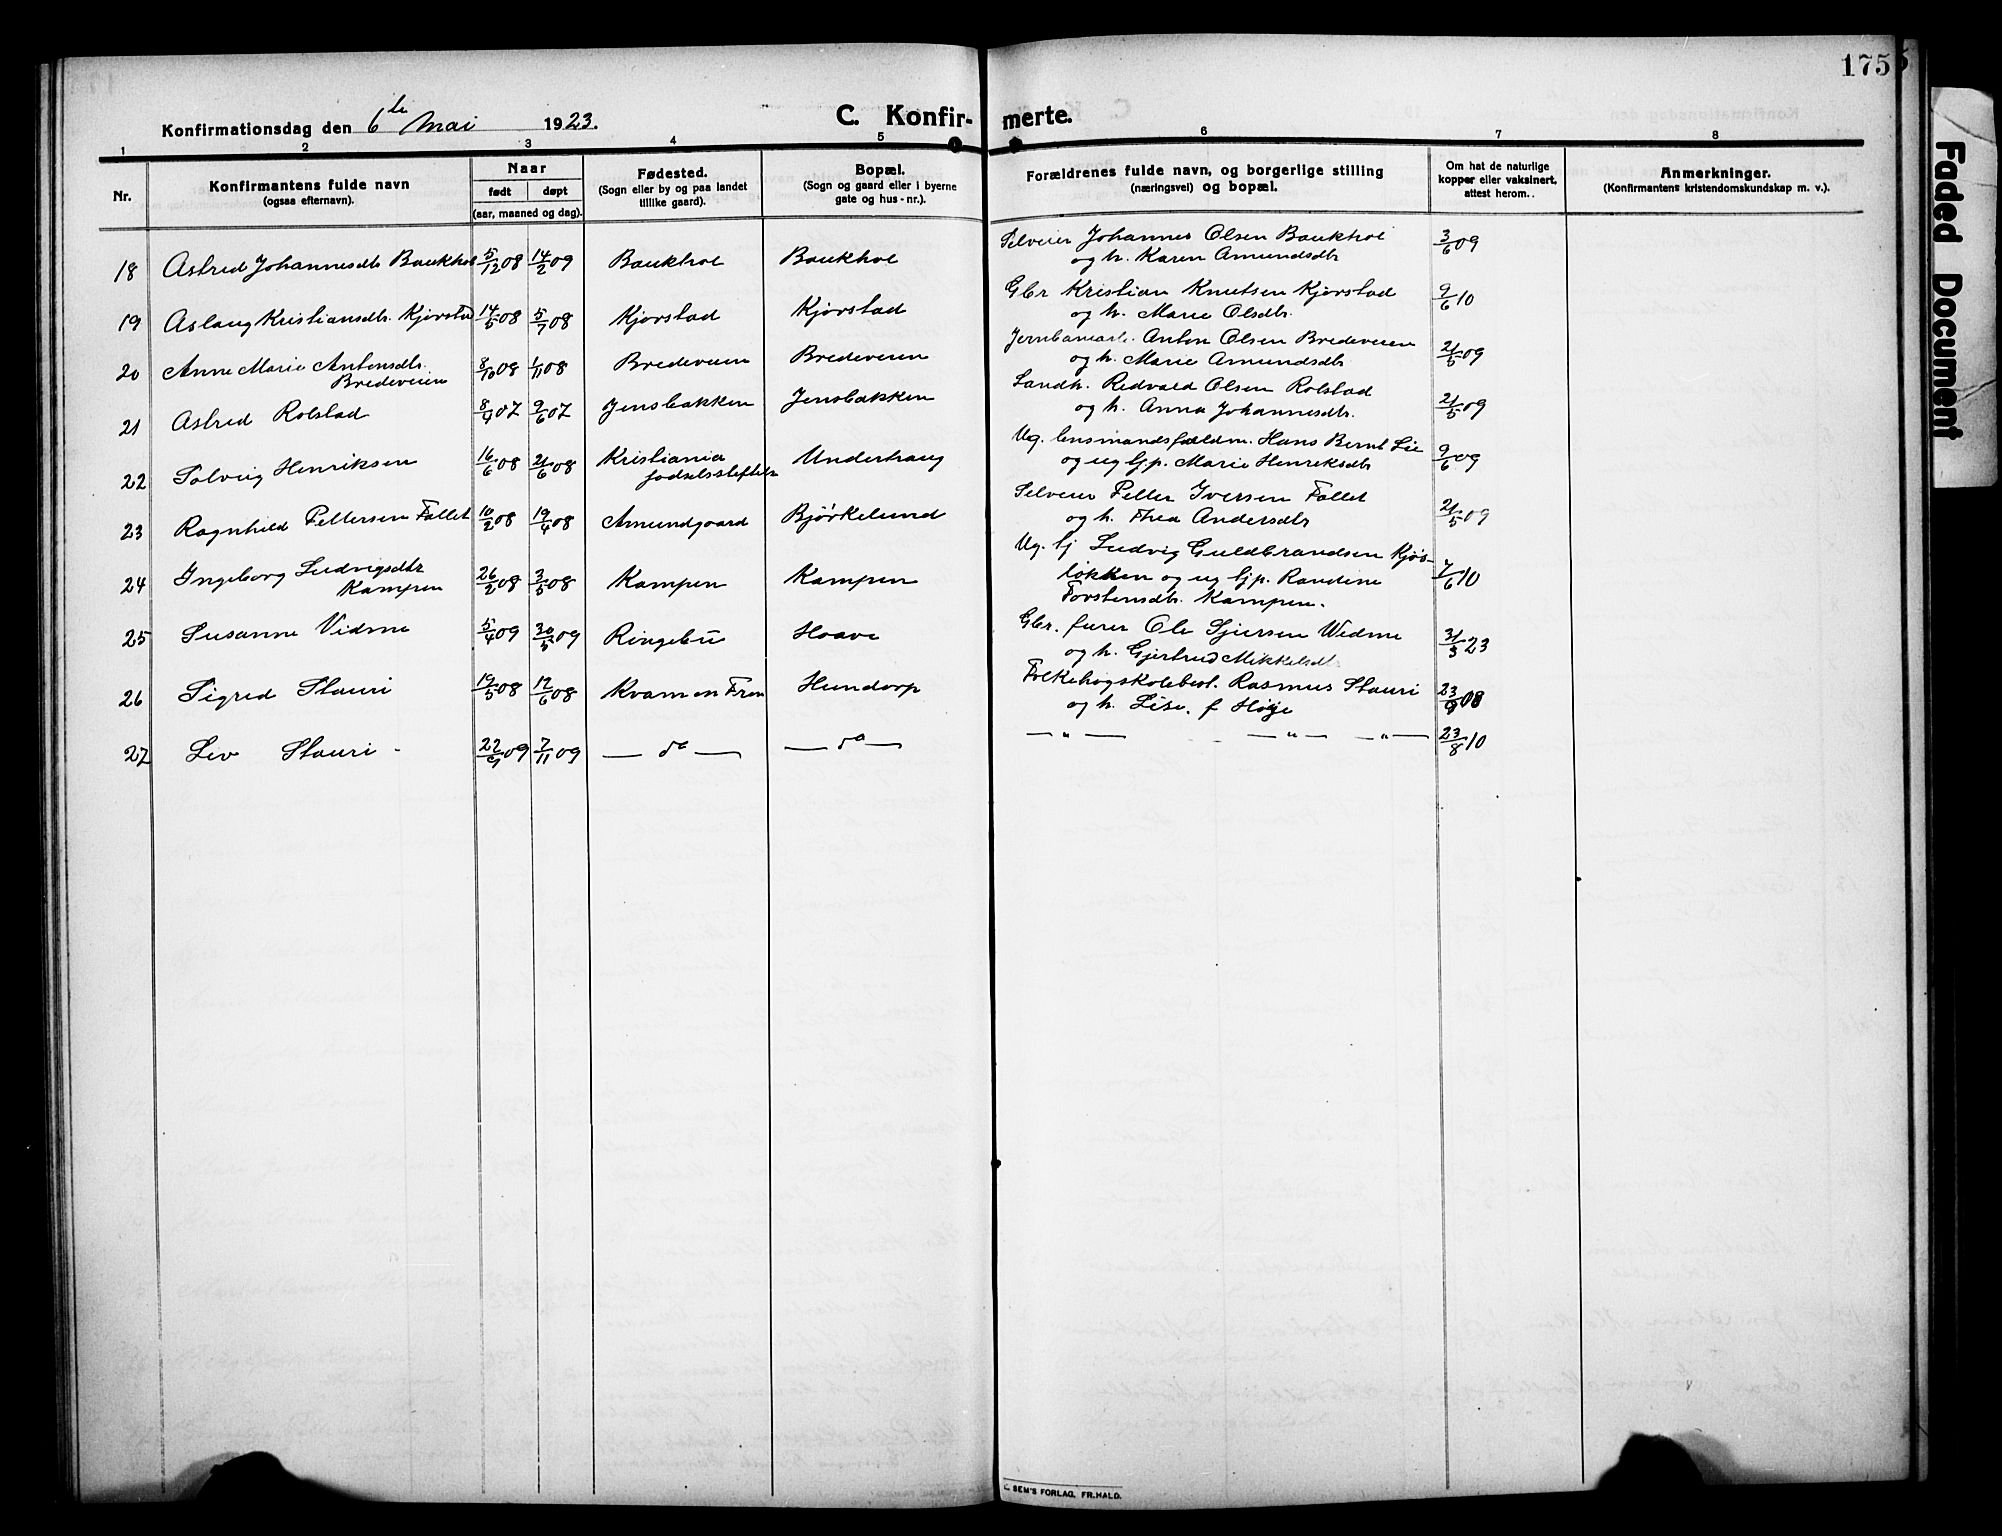 175
Konfirmationsdag den 6te Mai 1923.
C. Konfirmerte.
1 2 3 4 5 6 7 8
Nr.
Konfirmantens fulde navn
(ogsaa efternavn).
Naar
født døpt
(aar, maaned og dag).
Fødested.
(Sogn eller by og paa landet
tillike gaard).
Bopæl.
(Sogn og gaard eller i byerne
gate og hus-nr.).
Forældrenes fulde navn, og borgerlige stilling
(næringsvei) og bopæl.
Om hat de naturlige
kopper eller vaksinert,
attest herom.
Anmerkninger.
(Konfirmantens kristendomskundskap m. v.).
18 Astrid Johannesdtr Baukhol 5/12 08 14/2 09 Baukhol Baukhol Selveier Johannes Olsen Baukhol 3/6 09
og h. Karen Amundsdtr
19 Aslaug Kristiansdtr. Kjørstad 14/5 08 5/7 08 Kjørstad Kjørstad Gbr Kristian Knutsen Kjørstad 9/6 10
og h. Marie Olsdtr.
20 Anne Marie Antonsdtr. 8/10 08 1/11 08 Bredeveien Bredeveien Jernbanearb. Anton Olsen Bredeveien 21/5 09
Bredeveien og h. Marie Amundsdtr
21 Astrid Rolstad 8/4 07 9/6 07 Jensbakken Jensbakken Landh. Redvald Olsen Rolstad 21/5 09
og h. Anna Johannesdtr.
22 Solveig Henriksen 16/6 08 21/6 08 Kristiania Underhaug Ug. lensmandsfuldm. Hans Bernt Lie 9/6 09
fødselsstiftelse og ug tjp. Marie Henriksdtr
23 Ragnhild Pettersen Fallet 10/2 08 19/4 08 Amundgaard Bjørkelund Selveier Petter Iversen Fallet 21/5 09
og h. Thea Andersdtr
24 Ingeborg Ludvigsdtr 26/2 08 3/5 08 Kampen Kampen Ug. tj Ludvig Guldbrandsen Kjøs- 7/6 10
Kampen løkken og ug tjp. Randine
Torstensdtr. Kampen.
25 Susanne Vidme 5/4 09 30/5 09 Ringebu Haave Gbr. furer Ole Sjursen Widme 31/3 23
og h. Gjertrud Mikkelsdtr
26 Sigrid Stauri 19/5 08 17/6 08 Kvam en Fron Hundorp Folkehøgskolebest. Rasmus Stauri 23/9 08
og h. Lise. f Høgje
27 Liv Stauri - 22/9 09 7/11 09 — do — — do — — " — — " — — " — 23/8 10
E. SEM'S FORLAG, FR.HALD.
Faded Document